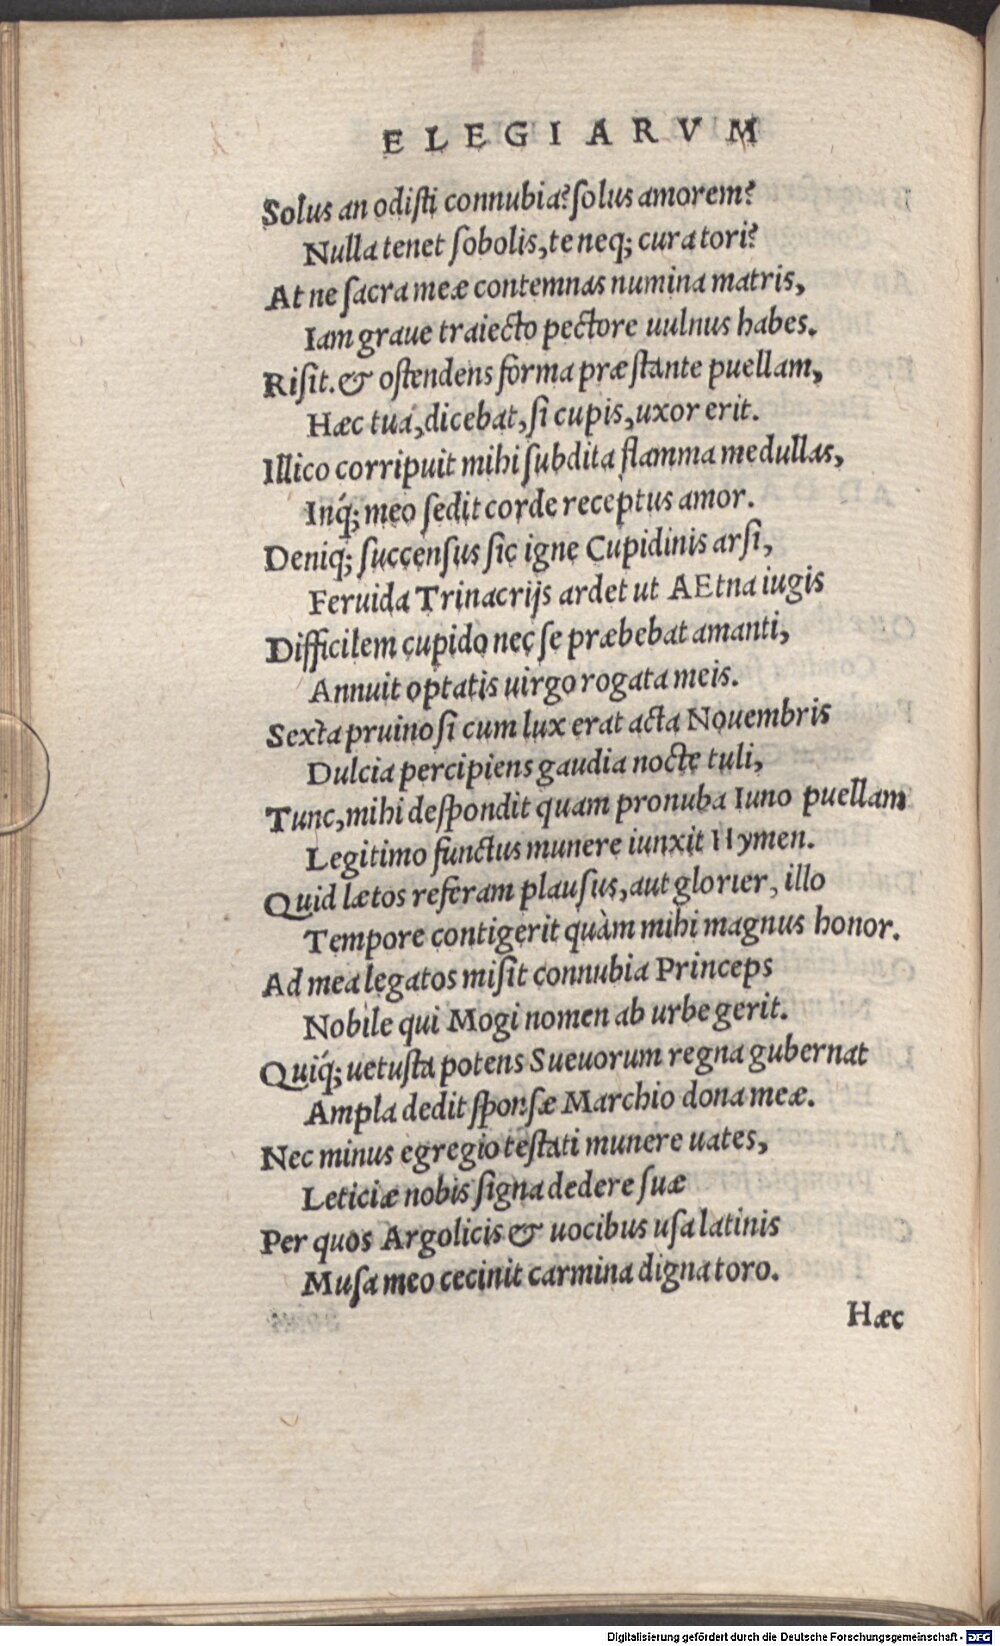 ELEGIARVM
Solus an odiſti connubia? ſolus amorem?
Nulla tenet ſobolis, te neq; cura tori?
At ne ſacra meæ contemnas numina matris,
Iam graue traiecto pectore uulnus habes.
Riſit. & oſtendens forma præſtante puellam,
Hæc tua, dicebat, ſi cupis, uxor erit.
Illico corripuit mihi ſubdita flamma medullas,
Inq́; meo ſedit corde receptus amor.
Deniq; ſuccenſus ſic igne Cupidinis arſi,
Feruida Trinacrijs ardet ut AEtna iugis
Difficilem cupido nec ſe præbebat amanti,
Annuit optatis uirgo rogata meis.
Sexta pruinoſi cum lux erat acta Nouembris
Dulcia percipiens gaudia nocte tuli,
Tunc, mihi deſpondit quam pronuba Iuno puellam
Legitimo functus munere iunxit Hymen.
Quid lætos referam plauſus, aut glorier, illo
Tempore contigerit quàm mihi magnus honor.
Ad mea legatos miſit connubia Princeps
Nobile qui Mogi nomen ab urbe gerit.
Quiq́; uetuſta potens Sueuorum regna gubernat
Ampla dedit ſponſæ Marchio dona meæ.
Nec minus egregio teſtati munere uates,
Leticiæ nobis ſigna dedere ſuæ
Per quos Argolicis & uocibus uſa latinis
Muſa meo cecinit carmina digna toro.
Hæc
Digitalisierung gefördert durch die Deutsche Forschungsgemeinschaft - DFG